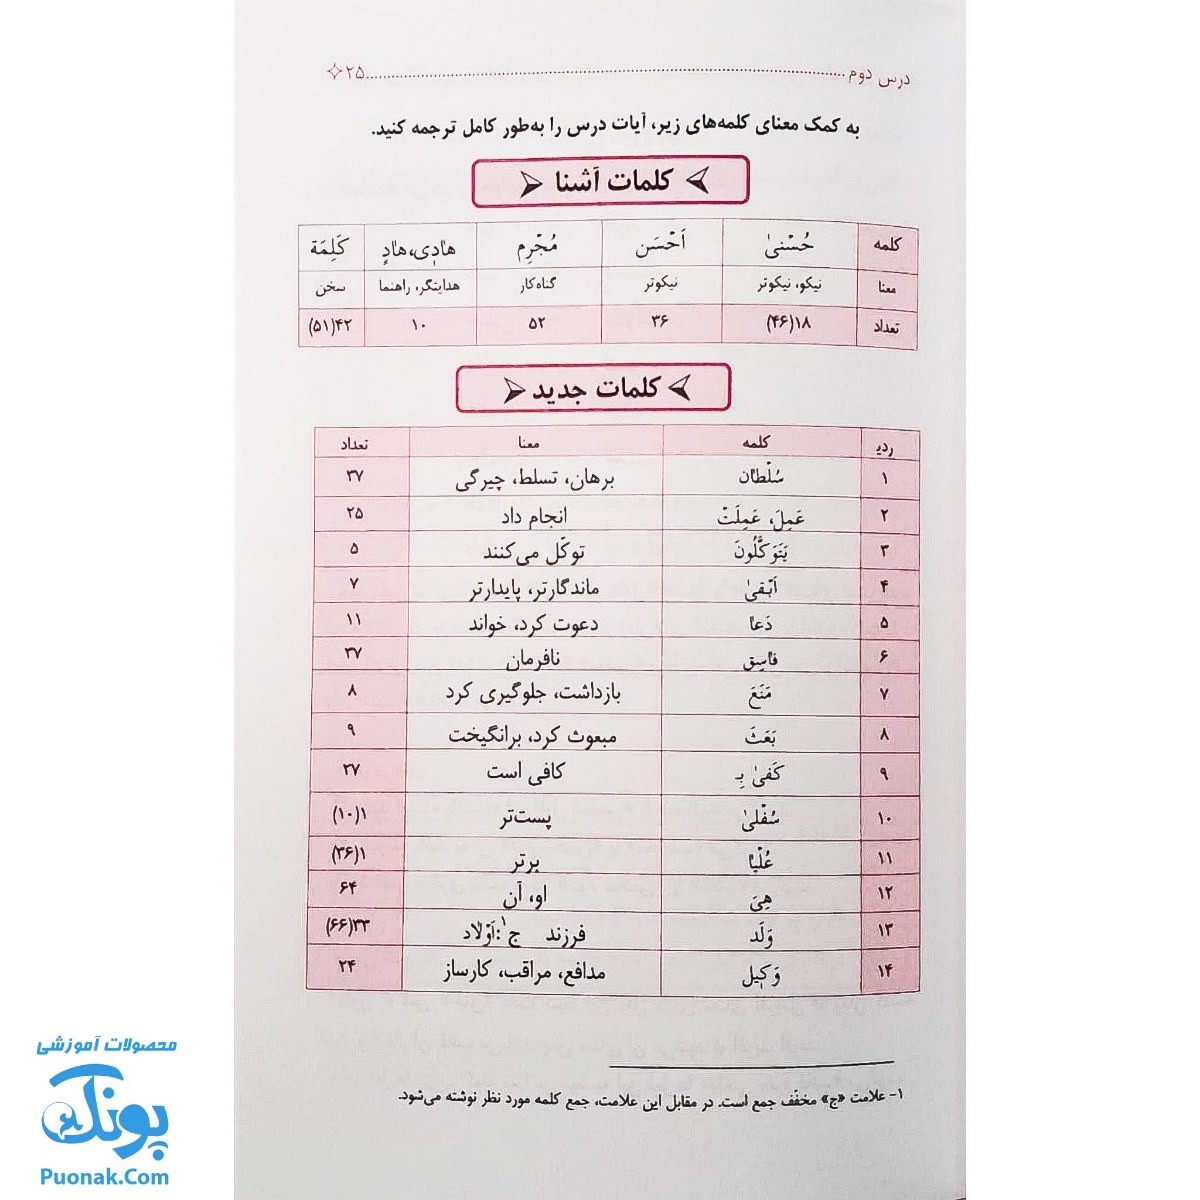 درس دوم ........................................ ۲۵
به کمک معنای کلمه‌های زیر، آیات درس را به‌طور کامل ترجمه کنید.
کلمات آشنا
کلمه حُسْنیٰ اَحْسَن مُجْرِم هادِی، هادٍ کَلِمَة
معنا نیکو، نیکوتر نیکوتر گناه‌کار هدایتگر، راهنما سخن
تعداد ۱۸(۴۶) ۳۶ ۵۲ ۱۰ ۴۲(۵۱)
کلمات جدید
ردیـ کلمه معنا تعداد
۱ سُلْطان برهان، تسلط، چیرگی ۳۷
۲ عَمِلَ، عَمِلَتْ انجام داد ۲۵
۳ یَتَوَکَّلُونَ توکّل می‌کنند ۵
۴ اَبْقیٰ ماندگارتر، پایدارتر ۷
۵ دَعا دعوت کرد، خواند ۱۱
۶ فاسِق نافرمان ۳۷
۷ مَنَعَ بازداشت، جلوگیری کرد ۸
۸ بَعَثَ مبعوث کرد، برانگیخت ۹
۹ کَفیٰ بِـ کافی است ۲۷
۱۰ سُفْلیٰ پست‌تر ۱(۱۰)
۱۱ عُلْیا برتر ۱(۳۶)
۱۲ هِیَ او، آن ۶۴
۱۳ وَلَد فرزند ج۱: اَوْلاد ۳۳(۶۶)
۱۴ وَکیل مدافع، مراقب، کارساز ۲۴
۱- علامت «ج» مخفّف جمع است. در مقابل این علامت، جمع کلمه مورد نظر نوشته می‌شود.
محصولات آموزشی
پونک
Puonak.Com